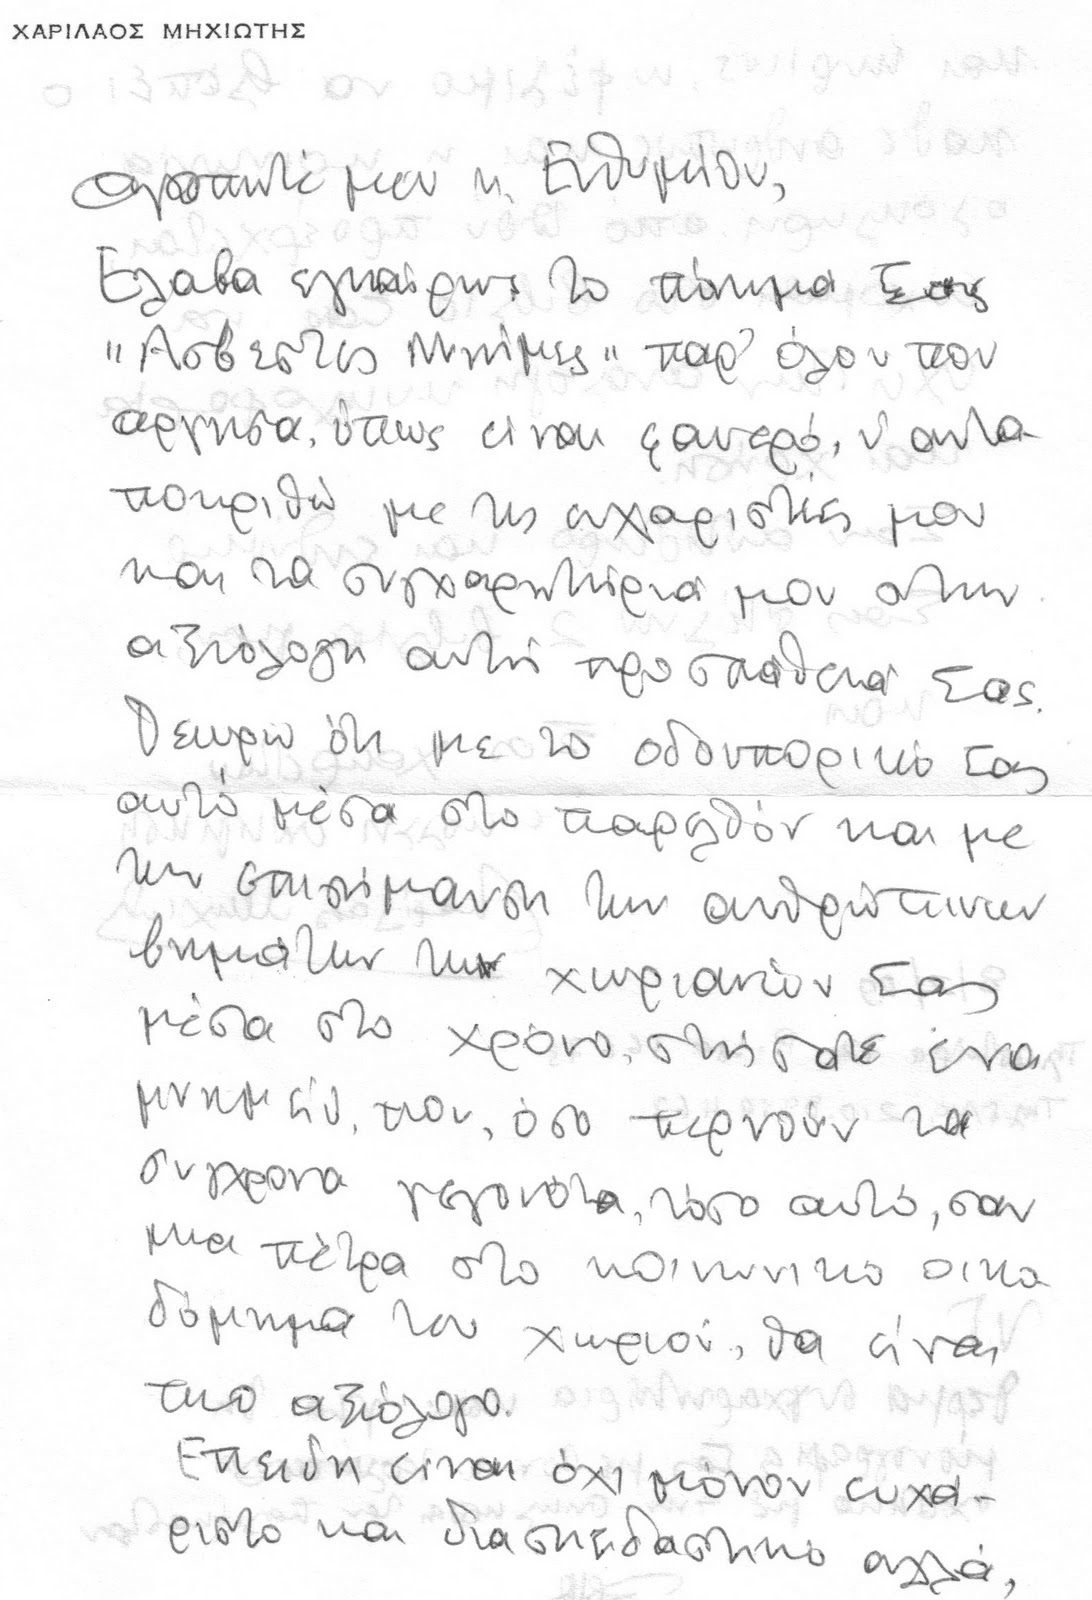 ΧΑΡΙΛΑΟΣ ΜΗΧΙΩΤΗΣ
Αγαπητέ μου κ. Ευθυμίου,
Έλαβα εγκαίρως το πόνημά Σας
"Άσβεστες Μνήμες" παρ' όλον που
άργησα, όπως είναι φανερό, ν' αντα-
ποκριθώ με τις ευχαριστίες μου
και τα συγχαρητήριά μου στην
αξιόλογη αυτή προσπάθειά Σας.
Θεωρώ ότι με το οδοιπορικό Σας
αυτό μέσα στο παρελθόν και με
την επισήμανση των ανθρώπινων
βημάτων των χωριανών Σας
μέσα στο χρόνο, στήσατε ένα
μνημείο, που, όσο περνούν τα
σύγχρονα γεγονότα, τόσο αυτό, σαν
μια πέτρα στο κοινωνικό οικο
δόμημα του χωριού, θα είναι
πιο αξιόλογο.
Επειδή είναι όχι μόνον ευχά-
ριστο και διασκεδαστικό αλλά,